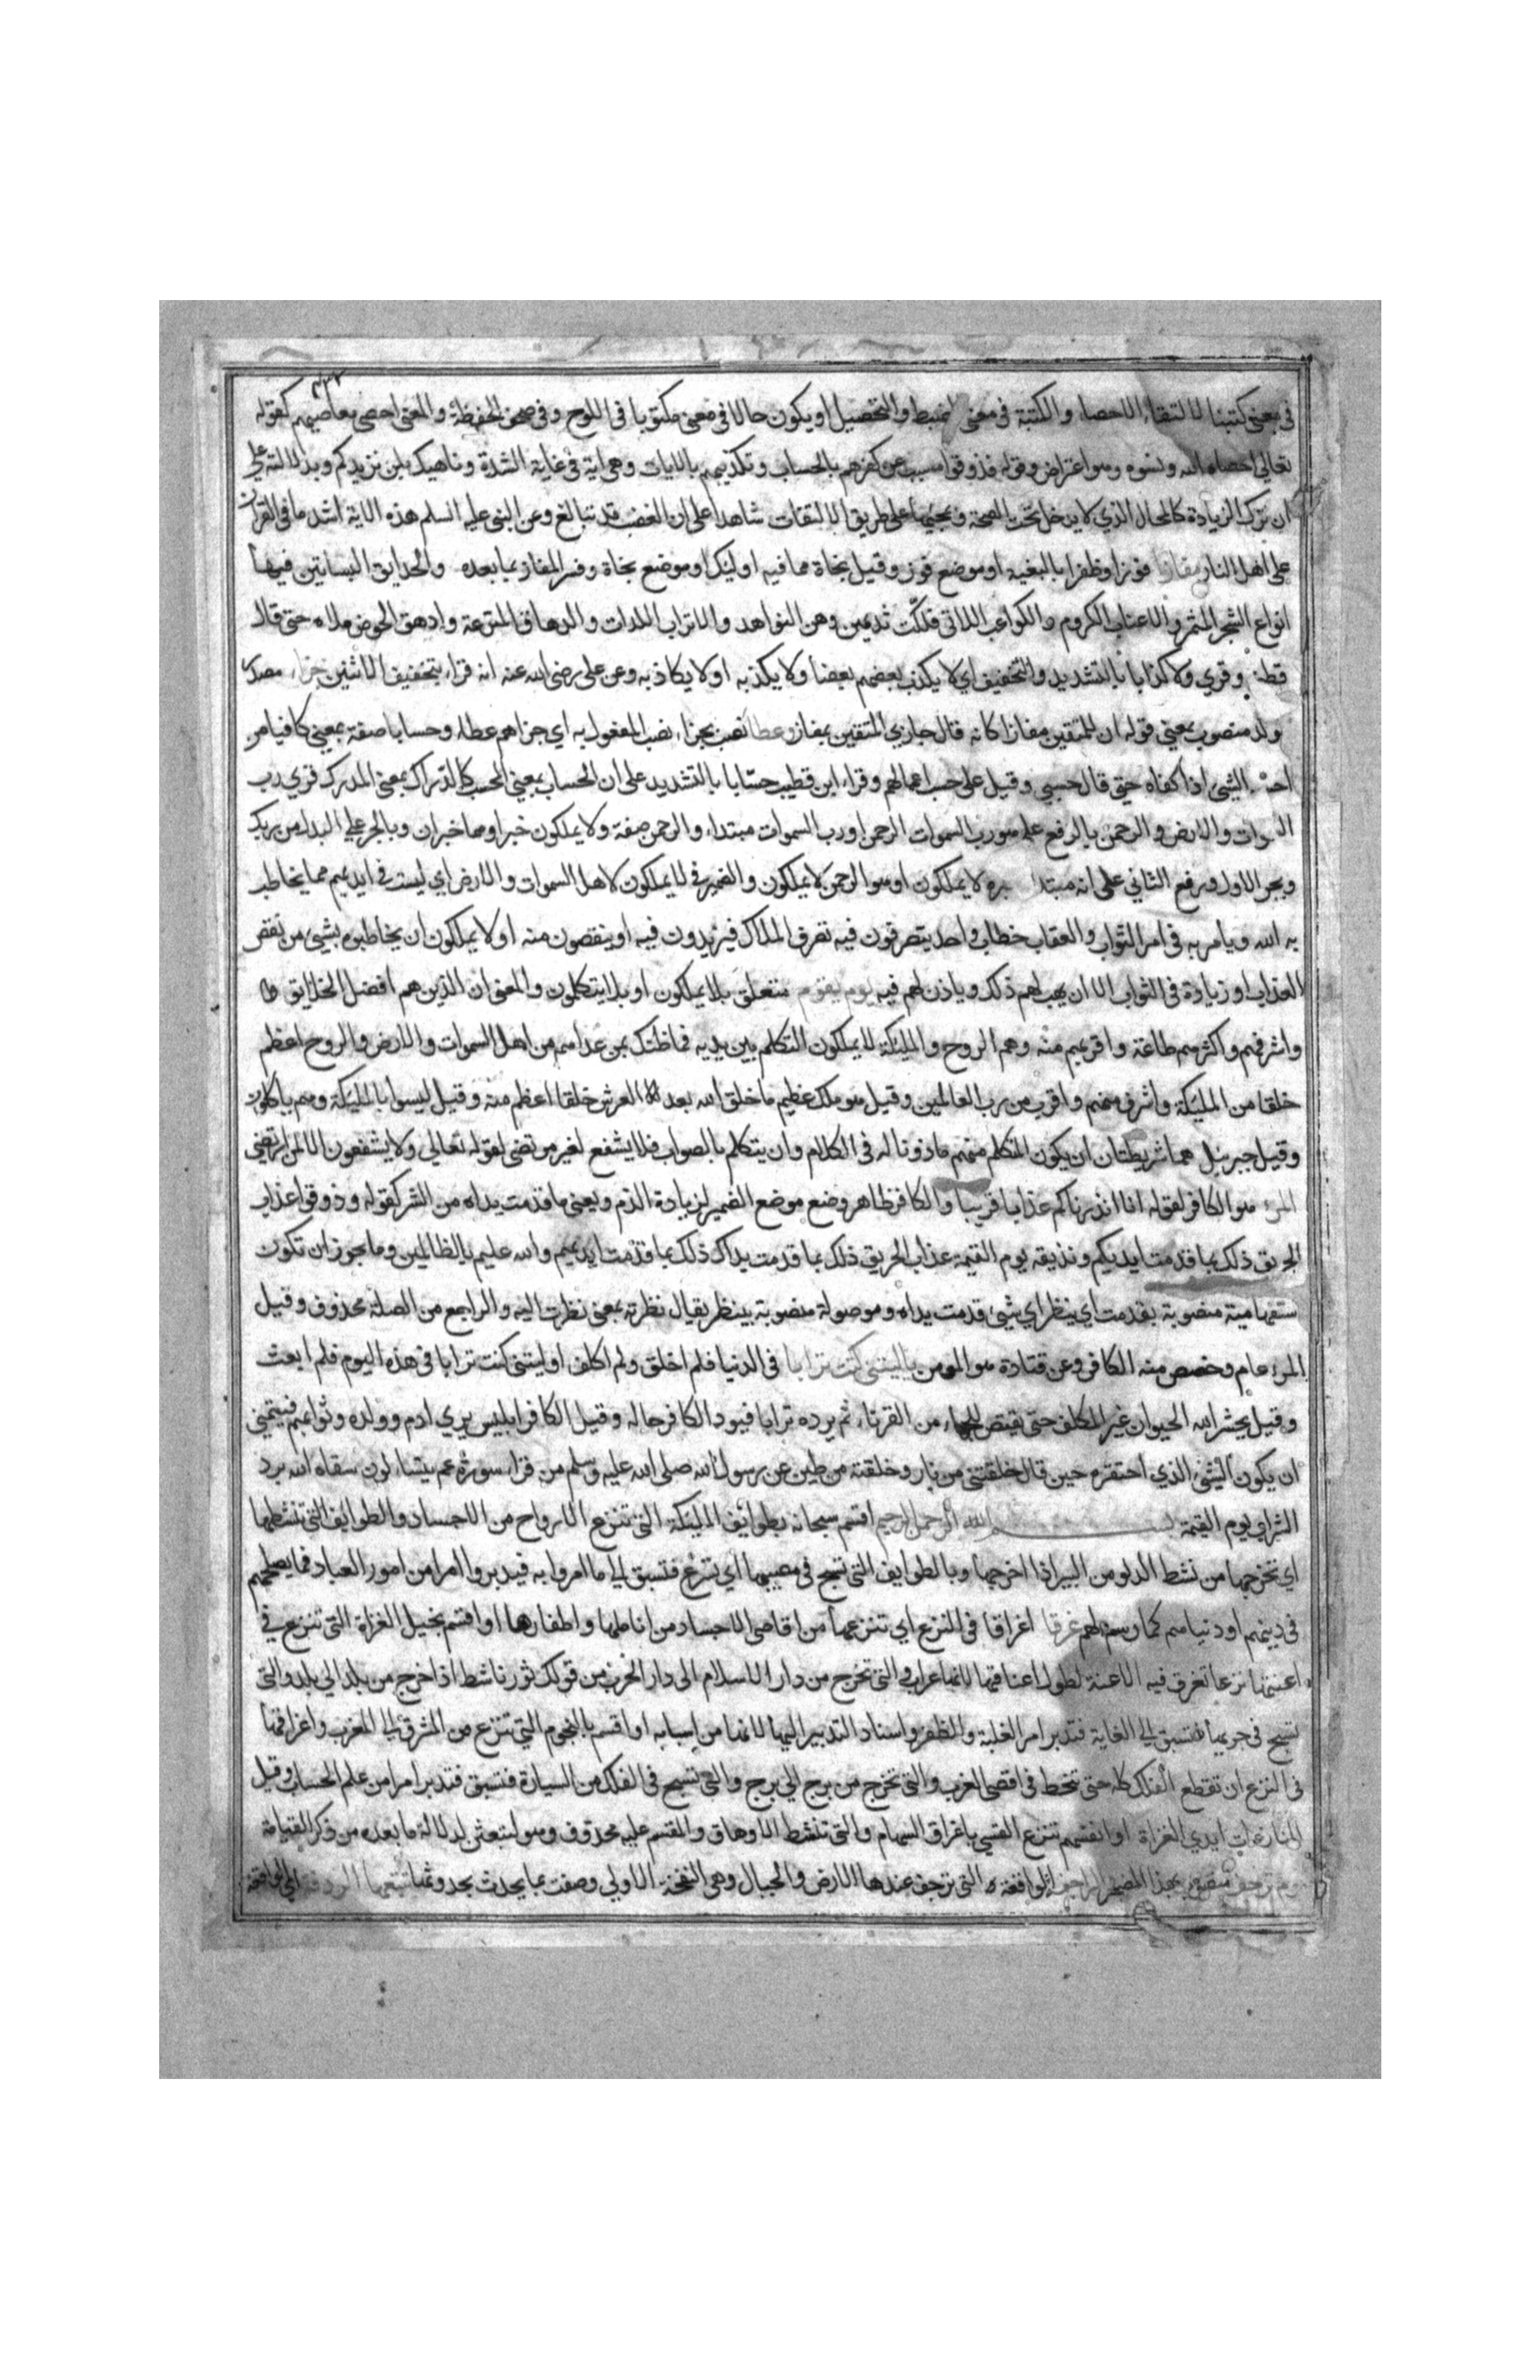 في معنى كتبنا لالتقاء الاحصاء والكتبة في معنى الضبط والتحصيل او يكون حالا في معنى مكتوبا في اللوح وفي صحف الحفظة والمعنى احصى معاصيهم كقوله
تعالى احصاه الله ونسوه وهو اعتراض وقوله فذوقوا مسبب عن كفرهم بالحساب وتكذيبهم بالايات وهي اية في غاية الشدة وناهيك بلن نزيدكم وبدلالته على
ان ترك الزيادة كالمحال الذي لا يدخل تحت الصحة وبمجيئها على طريق الالتفات شاهدا على ان الغضب قد تبالغ وعن النبي عليه السلم هذه الاية اشد ما في القران
على اهل النار مفازا فوزا وظفرا بالبغية او موضع فوز وقيل نجاة مما فيه اوليك او موضع نجاة وفسر المفاز بما بعده والحدايق البساتين فيها
انواع الشجر المثمر والاعناب الكروم والكواعب اللاتي فلكت ثديهن وهن النواهد والاتراب اللدات والدهاق المترعة وادهق الحوض ملاه حتى قال
قطني وقري ولا كذابا بالتشديد والتخفيف اي لا يكذب بعضهم بعضا ولا يكذبه او لا يكاذبه وعن علي رضي الله عنه انه قراء بتخفيف الاثنين جزاء مصدر
موكد منصوب بمعنى قوله ان للمتقين مفازا كانه قال جازي المتقين بمفاز وعطا نصب بجزاء نصب المفعول به اي جزاهم عطاء وحسابا صفة بمعنى كافيا من
احسبه الشيئ اذا كفاه حتى قال حسبي وقيل على حسب اعمالهم وقراء ابن قطيب حسابا بالتشديد على ان الحساب بمعنى المحسب كالدراك بمعنى المدرك قري رب
السموات والارض والرحمن بالرفع على هو رب السموات الرحمن او رب السموات مبتداء والرحمن صفة ولا يملكون خبر او هما خبران وبالجر على البدل من ربك
وبجر الاول ورفع الثاني على انه مبتدا خبره لا يملكون او هو الرحمن لا يملكون والضمير في لا يملكون لاهل السموات والارض اي ليست في ايديهم مما يخاطب
به الله ويامر به في امر الثواب والعقاب خطاب واحد يتصرفون فيه تصرف الملاك فيزيدون فيه او ينقصون منه او لا يملكون ان يخاطبوه بشيئ من نقص
العذاب او زيادة في الثواب الا ان يهب لهم ذلك وياذن لهم فيه يوم يقوم متعلق بلا يملكون او بلا يتكلمون والمعنى ان الذين هم افضل الخلايق
واشرفهم واكثرهم طاعة واقربهم منه وهم الروح والمليكة لا يملكون التكلم بين يديه فما ظنك بمن عداهم من اهل السموات والارض والروح اعظم
خلقا من المليكة واشرف منهم واقرب من رب العالمين وقيل هو ملك عظيم ما خلق الله بعد العرش خلقا اعظم منه وقيل ليسوا بالمليكة وهم ياكلون
وقيل جبريل هما شريطتان ان يكون المتكلم منهم ماذونا له في الكلام وان يتكلم بالصواب فلا يشفع لغير مرتضى لقوله تعالى ولا يشفعون الا لمن ارتضى
المرء هو الكافر لقوله انا انذرناكم عذابا قريبا والكافر ظاهر وضع موضع الضمير لزيادة الذم ويعني ما قدمت يداه من الشر كقوله وذوقوا عذاب
الحريق ذلك بما قدمت ايديكم ونذيقه يوم القيمة عذاب الحريق ذلك بما قدمت يداك ذلك بما قدمت ايديهم والله عليم بالظالمين وما يجوز ان تكون
ستفهامية منصوبة بقدمت اي ينظر اي شيئ قدمت يداه وموصولة منصوبة بينظر يقال نظرته بمعنى نظرت اليه والراجع من الصلة محذوف وقيل
المرء عام وخصص منه الكافر وعن قتادة هو المومن ياليتني كنت ترابا في الدنيا فلم اخلق ولم اكلف او ليتني كنت ترابا في هذه اليوم فلم ابعث
وقيل يحشر الله الحيوان غير المكلف حتى يقتص للجماء من القرناء ثم يرده ترابا فيود الكافر حاله وقيل الكافر ابليس يري ادم وولده وثوابهم فيتمنى
ان يكون الشيئ الذي احتقره حين قال خلقتني من نار وخلقته من طين عن رسول الله صلى الله عليه وسلم من قراء سورة عم يتساءلون سقاه الله برد
الشراب يوم القيمة بسم الله الرحمن الرحيم اقسم سبحانه بطوائف المليكة التي تنزع الارواح من الاجساد والطوايف التي تنشطها
اي تخرجها من نشط الدلو من البير اذا اخرجها وبالطوايف التي تسبح في مضيها اي تسرع فتسبق الى ما امروا به فيدبروا امرا من امور العباد فما يصلحهم
في دينهم او دنياهم كما رسم لهم غرقا اغراقا في النزع اي تنزعها من اقاصي الاجساد من اناملها واظفارها او اقسم بخيل الغزاة التي تنزع في
اعنتها نزعا تغرق فيه الاعنة لطول اعناقها لانها عراب والتي تخرج من دار الاسلام الى دار الحرب من قولك ثور ناشط اذا خرج من بلد الى بلد والتي
تسبح في جريها فتسبق الى الغاية فتدبر امر الغلبة والظفر واسناد التدبير اليها لانها من اسبابه او اقسم بالنجوم التي تنزع من المشرق الى المغرب واغراقها
في النزع ان تقطع الفلك كله حتى تنحط في اقصى الغرب والتي تخرج من برج الى برج والتي تسبح في الفلك من السيارة فتسبق فتدبر امرا من علم الحساب وقيل
النازعات ايدي الغزاة او انفسهم تنزع القسي باغراق السهام والتي تنشط الاوهاق والمقسم عليه محذوف وهو لتبعثن لدلالة ما بعده من ذكر القيامة
يوم ترجف منصوب بهذا المضمر الراجفة الواقعة التي ترجف عندها الارض والجبال وهي النفخة الاولى وصفت بما يحدث بحدوثها تتبعها الرادفة اي الواقعة